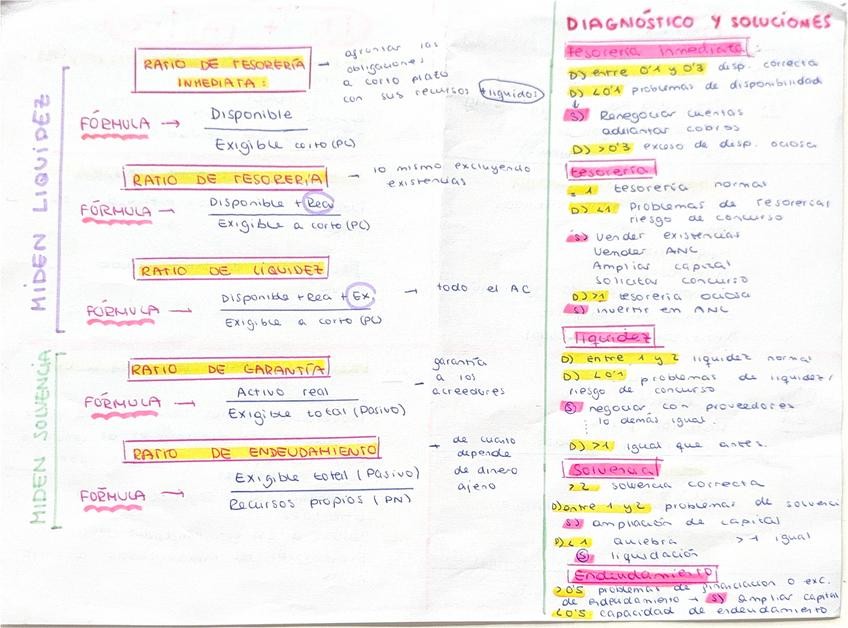 MIDEN LIQUIDEZ
RATIO DE TESORERÍA
INMEDIATA:
→ afrontar las
obligaciones
a corto plazo
con sus recursos +líquidos
FÓRMULA → Disponible
Exigible corto (PC)
RATIO DE TESORERÍA → lo mismo excluyendo
existencias
FÓRMULA → Disponible + Rea
Exigible a corto (PC)
RATIO DE LÍQUIDEZ
FÓRMULA → Disponible + Rea + Exi → todo el AC
Exigible a corto (PC)
MIDEN SOLVENCIA
RATIO DE GARANTÍA → garantía
a los
acreedores
FÓRMULA → Activo real
Exigible total (Pasivo)
RATIO DE ENDEUDAMIENTO → de cuanto
depende
de dinero
ajeno
FÓRMULA → Exigible total (Pasivo)
Recursos propios (PN)
DIAGNÓSTICO Y SOLUCIONES
Tesorería inmediata:
D) entre 0'1 y 0'3 disp. correcta
D) <0'1 problemas de disponibilidad
↓
S) Renegociar cuentas
adelantar cobros
D) >0'3 exceso de disp. ociosa
tesorería
= 1 tesorería normal
D) <1 Problemas de tesorería/
riesgo de concurso
S) Vender existencias
Vender ANC
Ampliar capital
Solicitar concurso
D) >1 tesorería ociosa
S) invertir en ANC
liquidez
D) entre 1 y 2 liquidez normal
D) <0'1 problemas de liquidez/
riesgo de concurso
S) negociar con proveedores
lo demás igual.
D) >1 igual que antes.
Solvencia
>2 solvencia correcta
D) entre 1 y 2 problemas de solvenci
S) ampliación de capital
D) <1 quiebra >1 igual
S) liquidación
Endeudamiento
>0'5 problemas de financiación o exc.
de endeudamiento → S) ampliar capital
<0'5 capacidad de endeudamiento